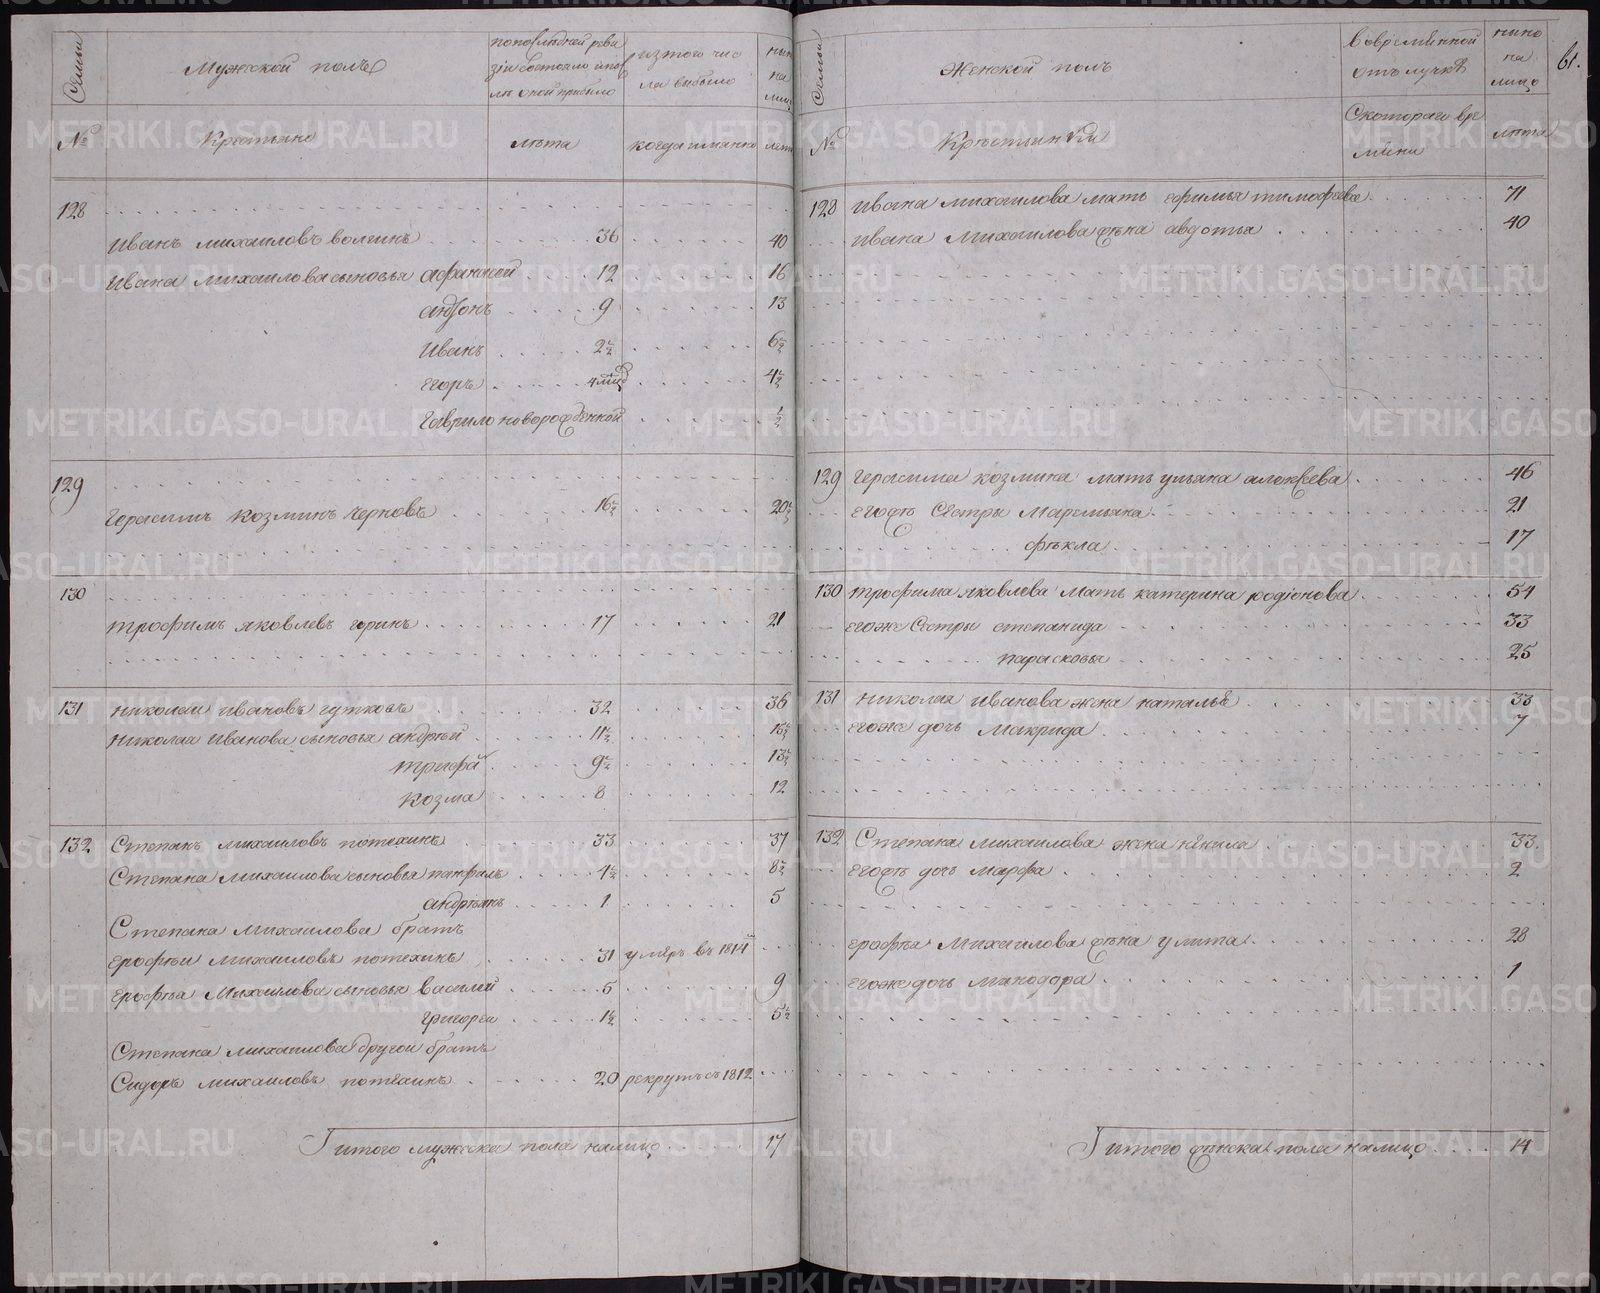 Семьи
Мужской полъ
по последней ревизіи состояло и после оной прибыло
изъ того числа выбыло
ныне на лицо
№
Крестьяне
лѣта
когда имянно
лета
128
Иванъ михаиловъ волгинъ 36 40
Ивана михаилова сыновья афанасей 12 16
андронъ 9 13
Иванъ 2½ 6½
егоръ 4 мѣц 4½
гаврило новорожденной ½
129
герасимъ козминъ черновъ 16½ 20½
130
трофимъ яковлевъ горинъ 17 21
131 николаи ивановъ гутковъ 32 36
николая иванова сыновья андрей 11½ 15½
трифа 9½ 13½
козма 8 12
132 Степанъ михаиловъ потехинъ 33 37
Степана михаилова сыновья панфилъ 4½ 8½
андреянъ 1 5
Степана михаилова братъ
ерофѣи михаиловъ потехинъ 31 умеръ въ 1814
ерофѣа михаилова сыновья василий 5 9
григореи 1½ 5½
Степана михаилова другои братъ
Сидоръ михаиловъ потехинъ 20 рекрутъ съ 1812
итого мужеска пола налицо 17
Семьи
Женской полъ
во временной отлучкѣ
ныне на лицо
61.
№
Крестьянки
Скотораго времени
лѣта
128 ивана михаилова мать ефимья тимофеева 71
ивана михаилова жена авдотья 40
129 герасима козмина мать ульяна алексеева 46
егожъ сестры маремьяна 21
фекла 17
130 трофима яковлева мать катерина родіонова 54
егоже сестры степанида 33
парасковья 25
131 николая иванова жена наталья 33
егоже дочь макрида 7
132 Степана михаилова жена ненила 33
егожъ дочь марфа 2
ерофѣа михаилова жена улита 28
егоже дочь минодора 1
итого женска пола налицо 14
METRIKI.GASO-URAL.RU